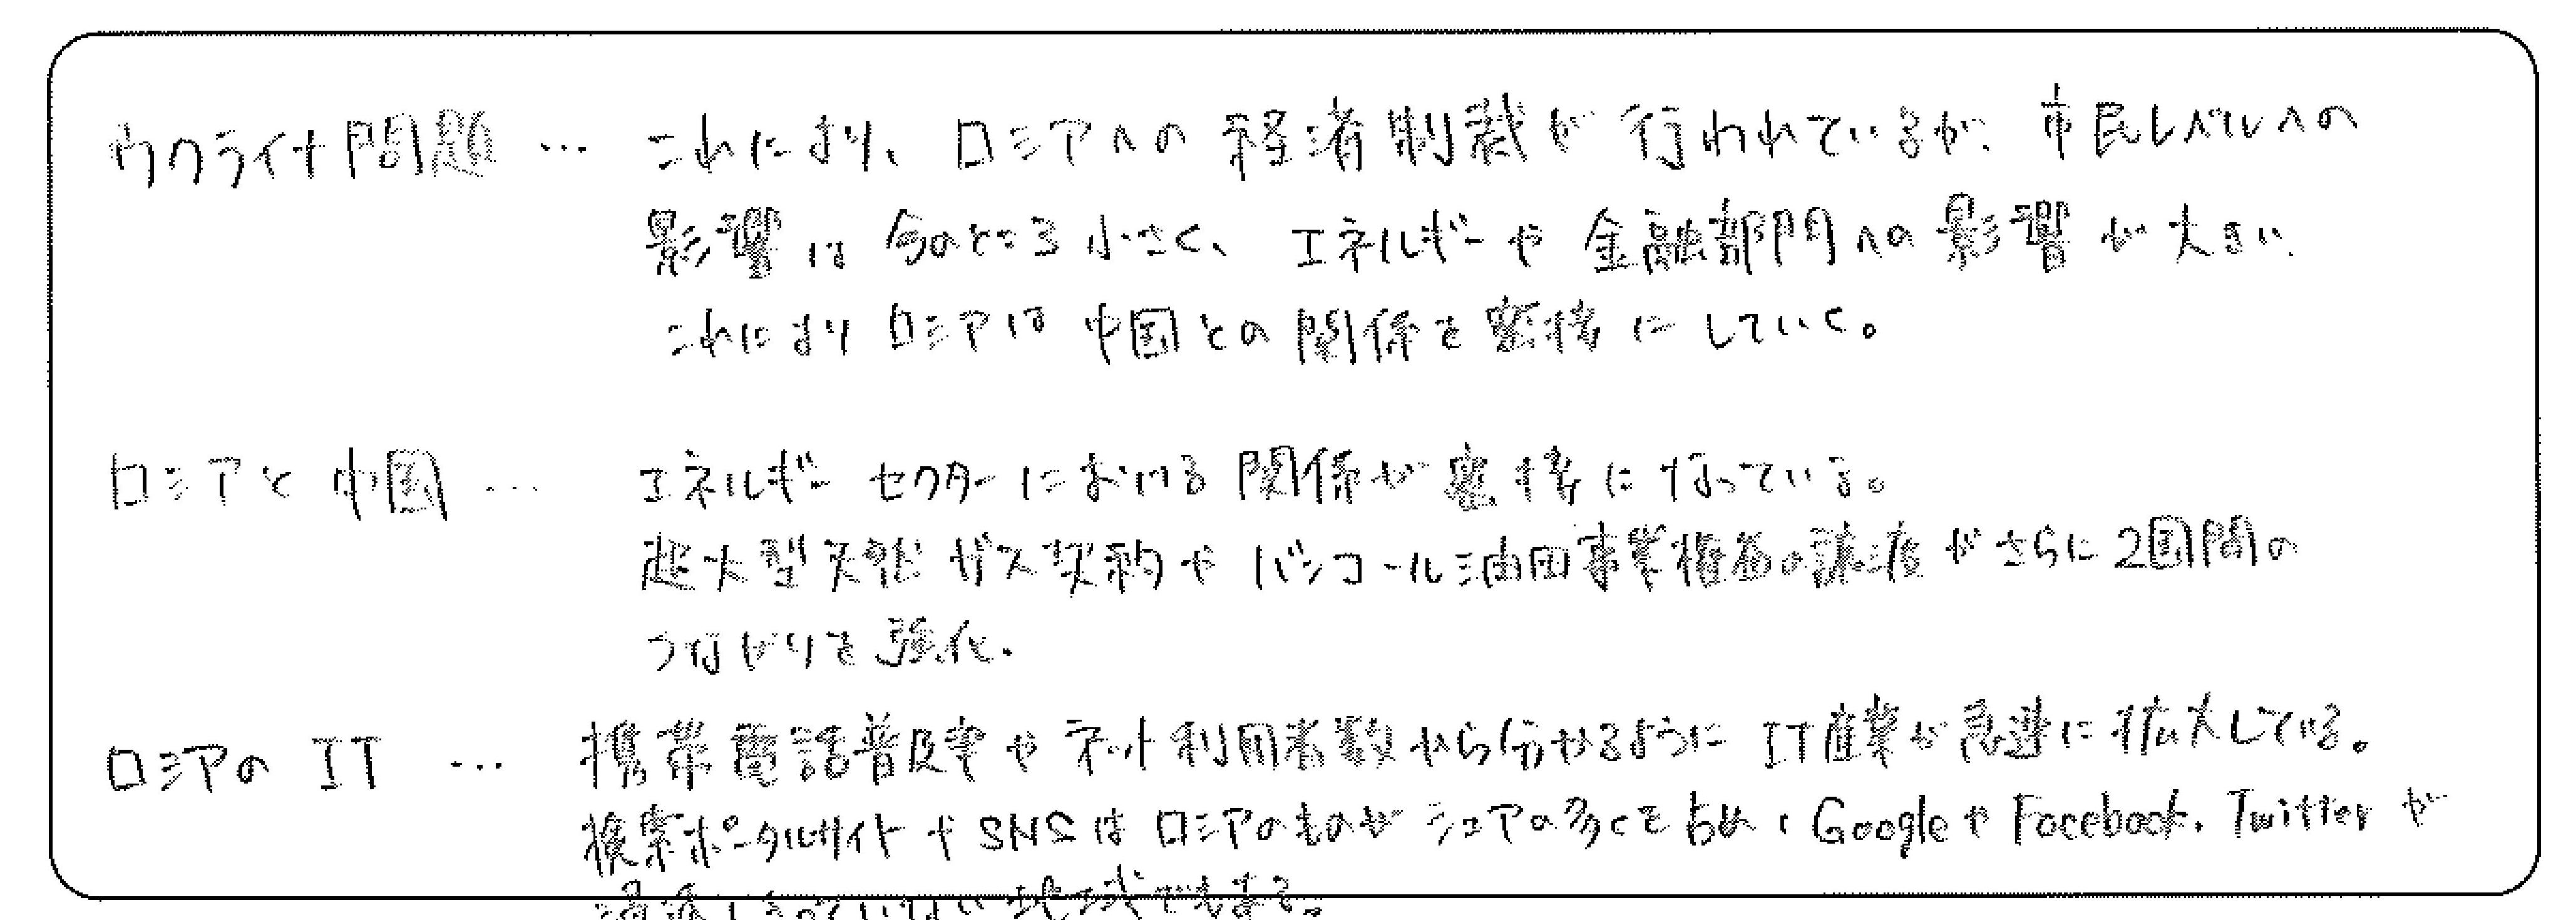 ウクライナ問題 … これにより、ロシアへの経済制裁が行われているが、市民レベルへの
影響は今のところ小さく、エネルギーや金融部門への影響が大きい
これによりロシアは中国との関係を密接にしていく。
ロシアと中国 … エネルギーセクターにおける関係が密接になっている。
超大型天然ガス契約やバンコール油田事業権益の譲渡がさらに2国間の
つながりを強化.
ロシアのIT … 携帯電話普及率やネット利用者数から分かるようにIT産業が急速に拡大している。
検索ポータルサイトやSNSはロシアのものがシェアの多くを占め、GoogleやFacebook、Twitterが
浸透しきっていない地域でもある。